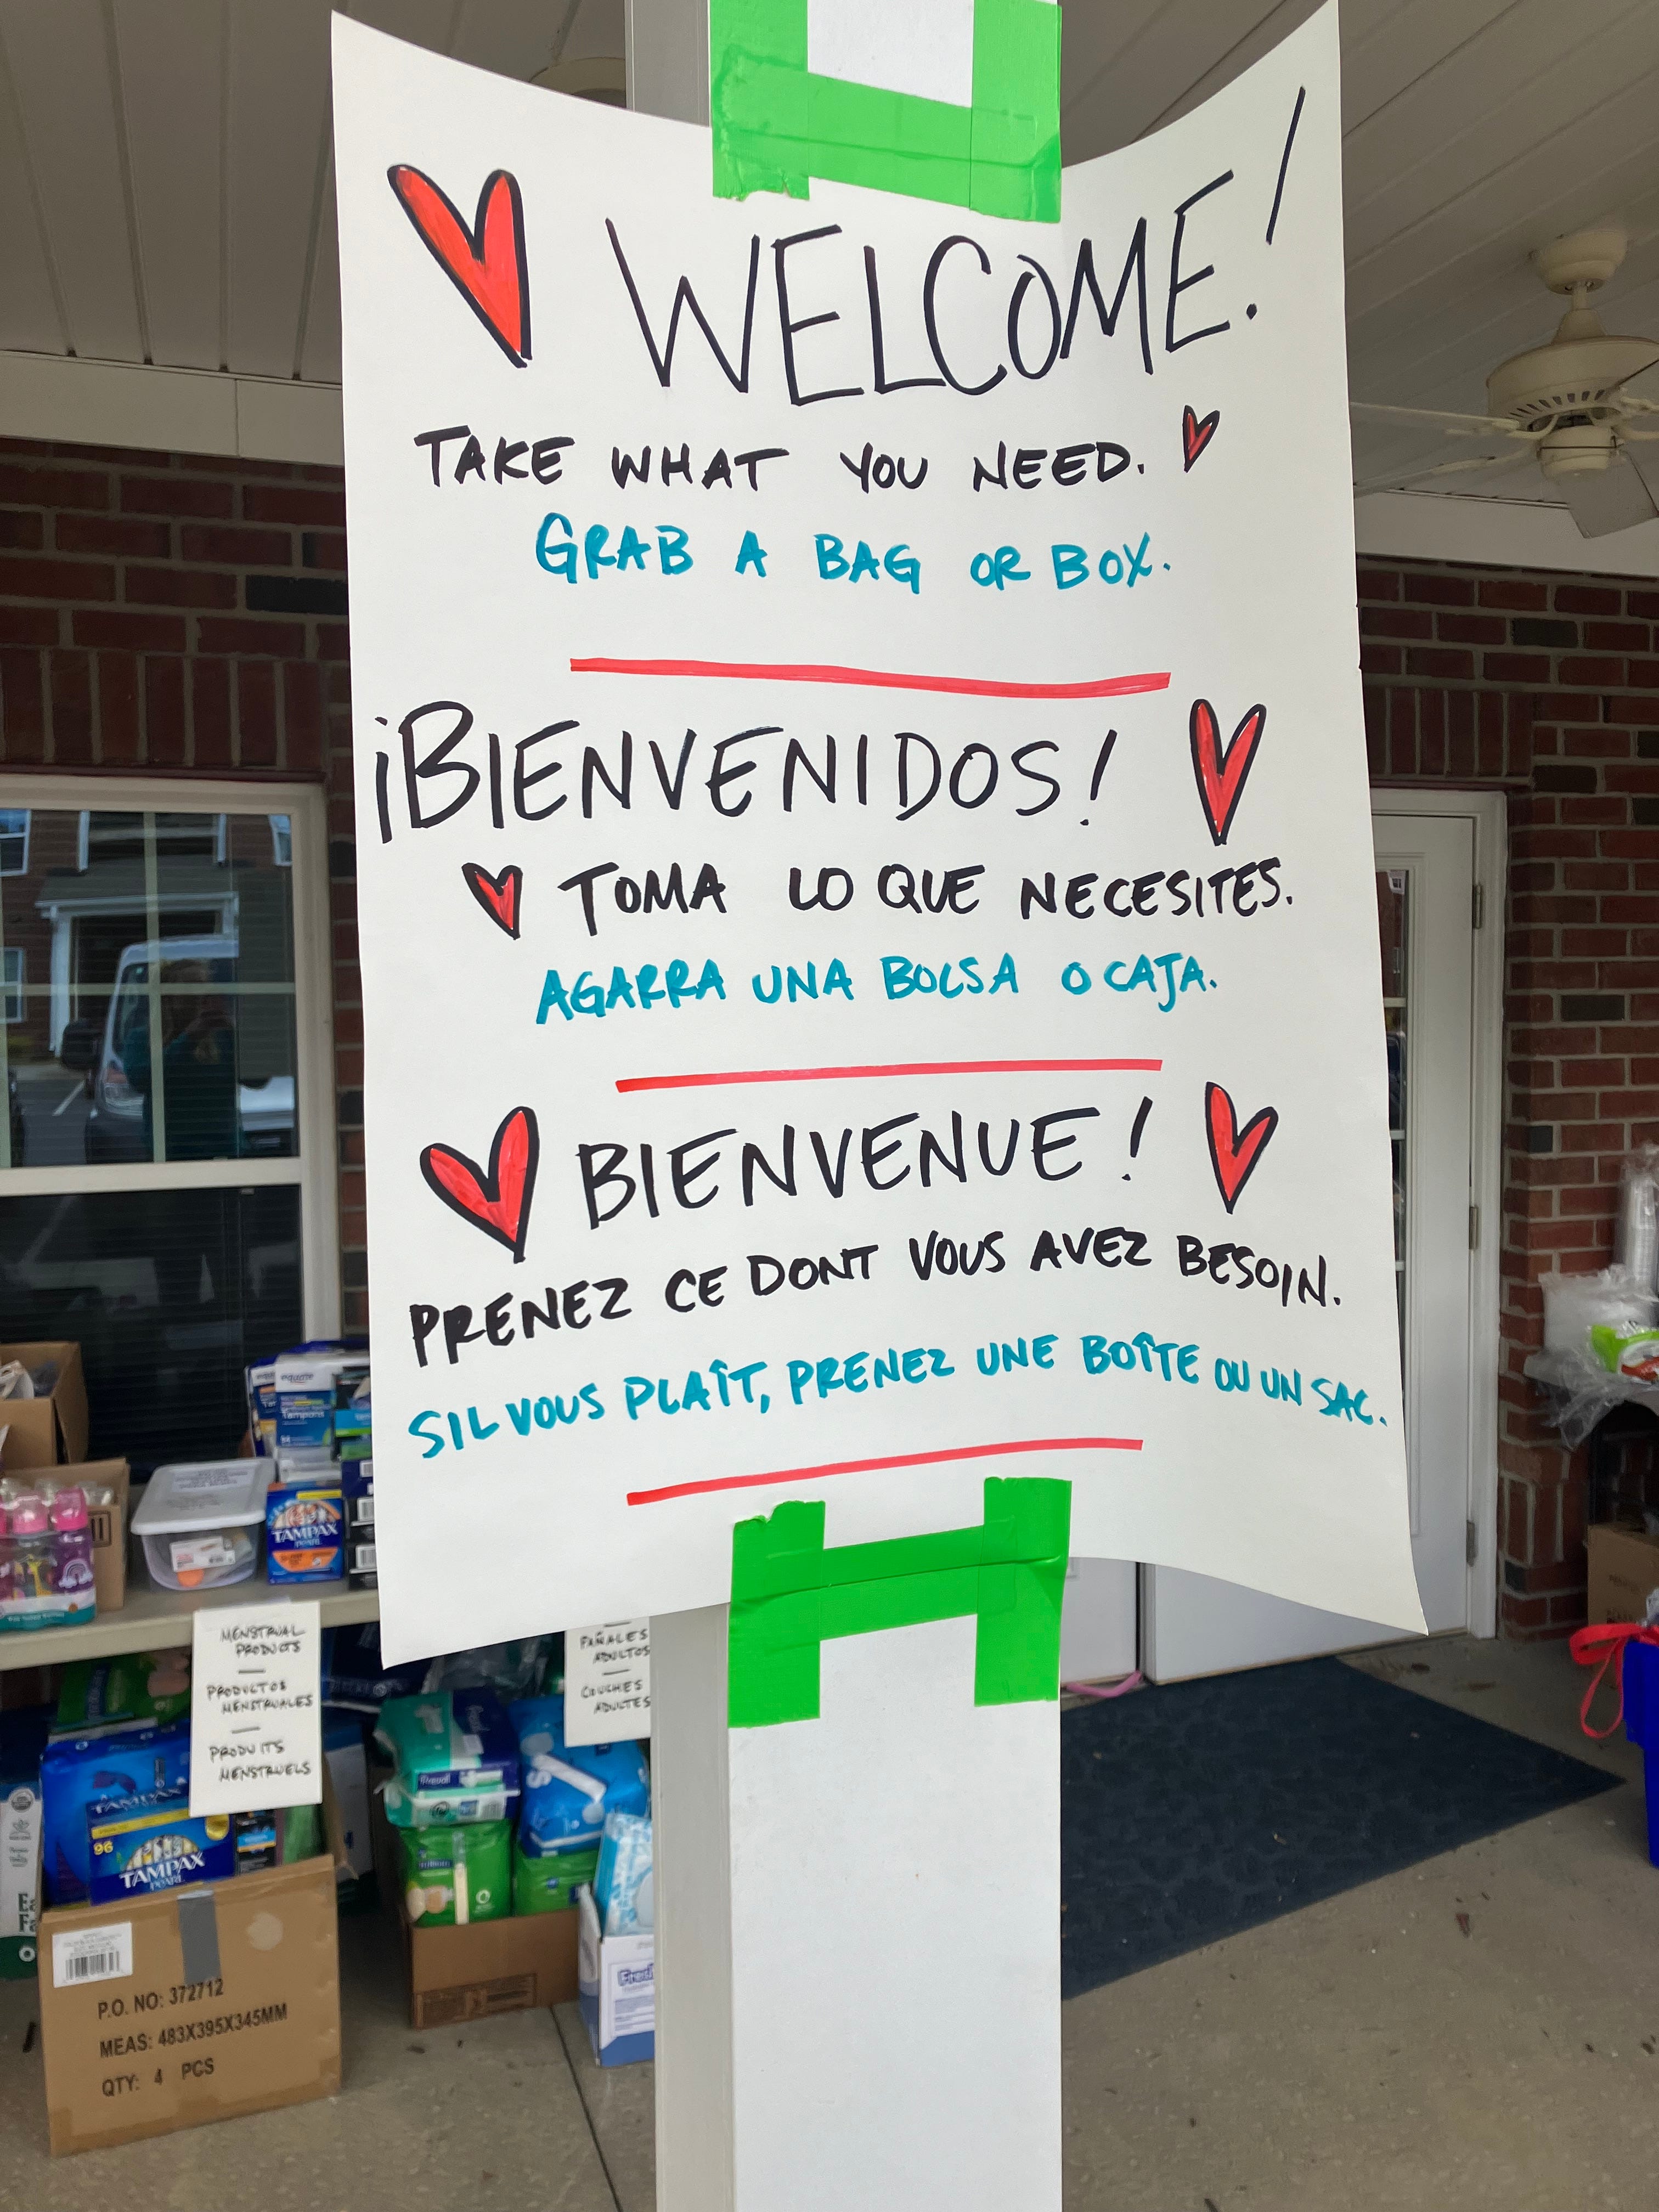 WELCOME!
TAKE WHAT YOU NEED.
GRAB A BAG OR BOX.
¡BIENVENIDOS!
TOMA LO QUE NECESITES.
AGARRA UNA BOLSA O CAJA.
BIENVENUE!
PRENEZ CE DONT VOUS AVEZ BESOIN.
SIL VOUS PLAÎT, PRENEZ UNE BOÎTE OU UN SAC.
equate
Tampons
TAMPAX
pearl
MENSTRUAL
PRODUCTS
PRODUCTOS
MENSTRUALES
PRODUITS
MENSTRUELS
PAÑALES
ADULTOS
COUCHES
ADULTES
Prevail
TAMPAX
96
TAMPAX
pearl
P.O. NO: 372712
MEAS: 483X395X345MM
QTY: 4 PCS